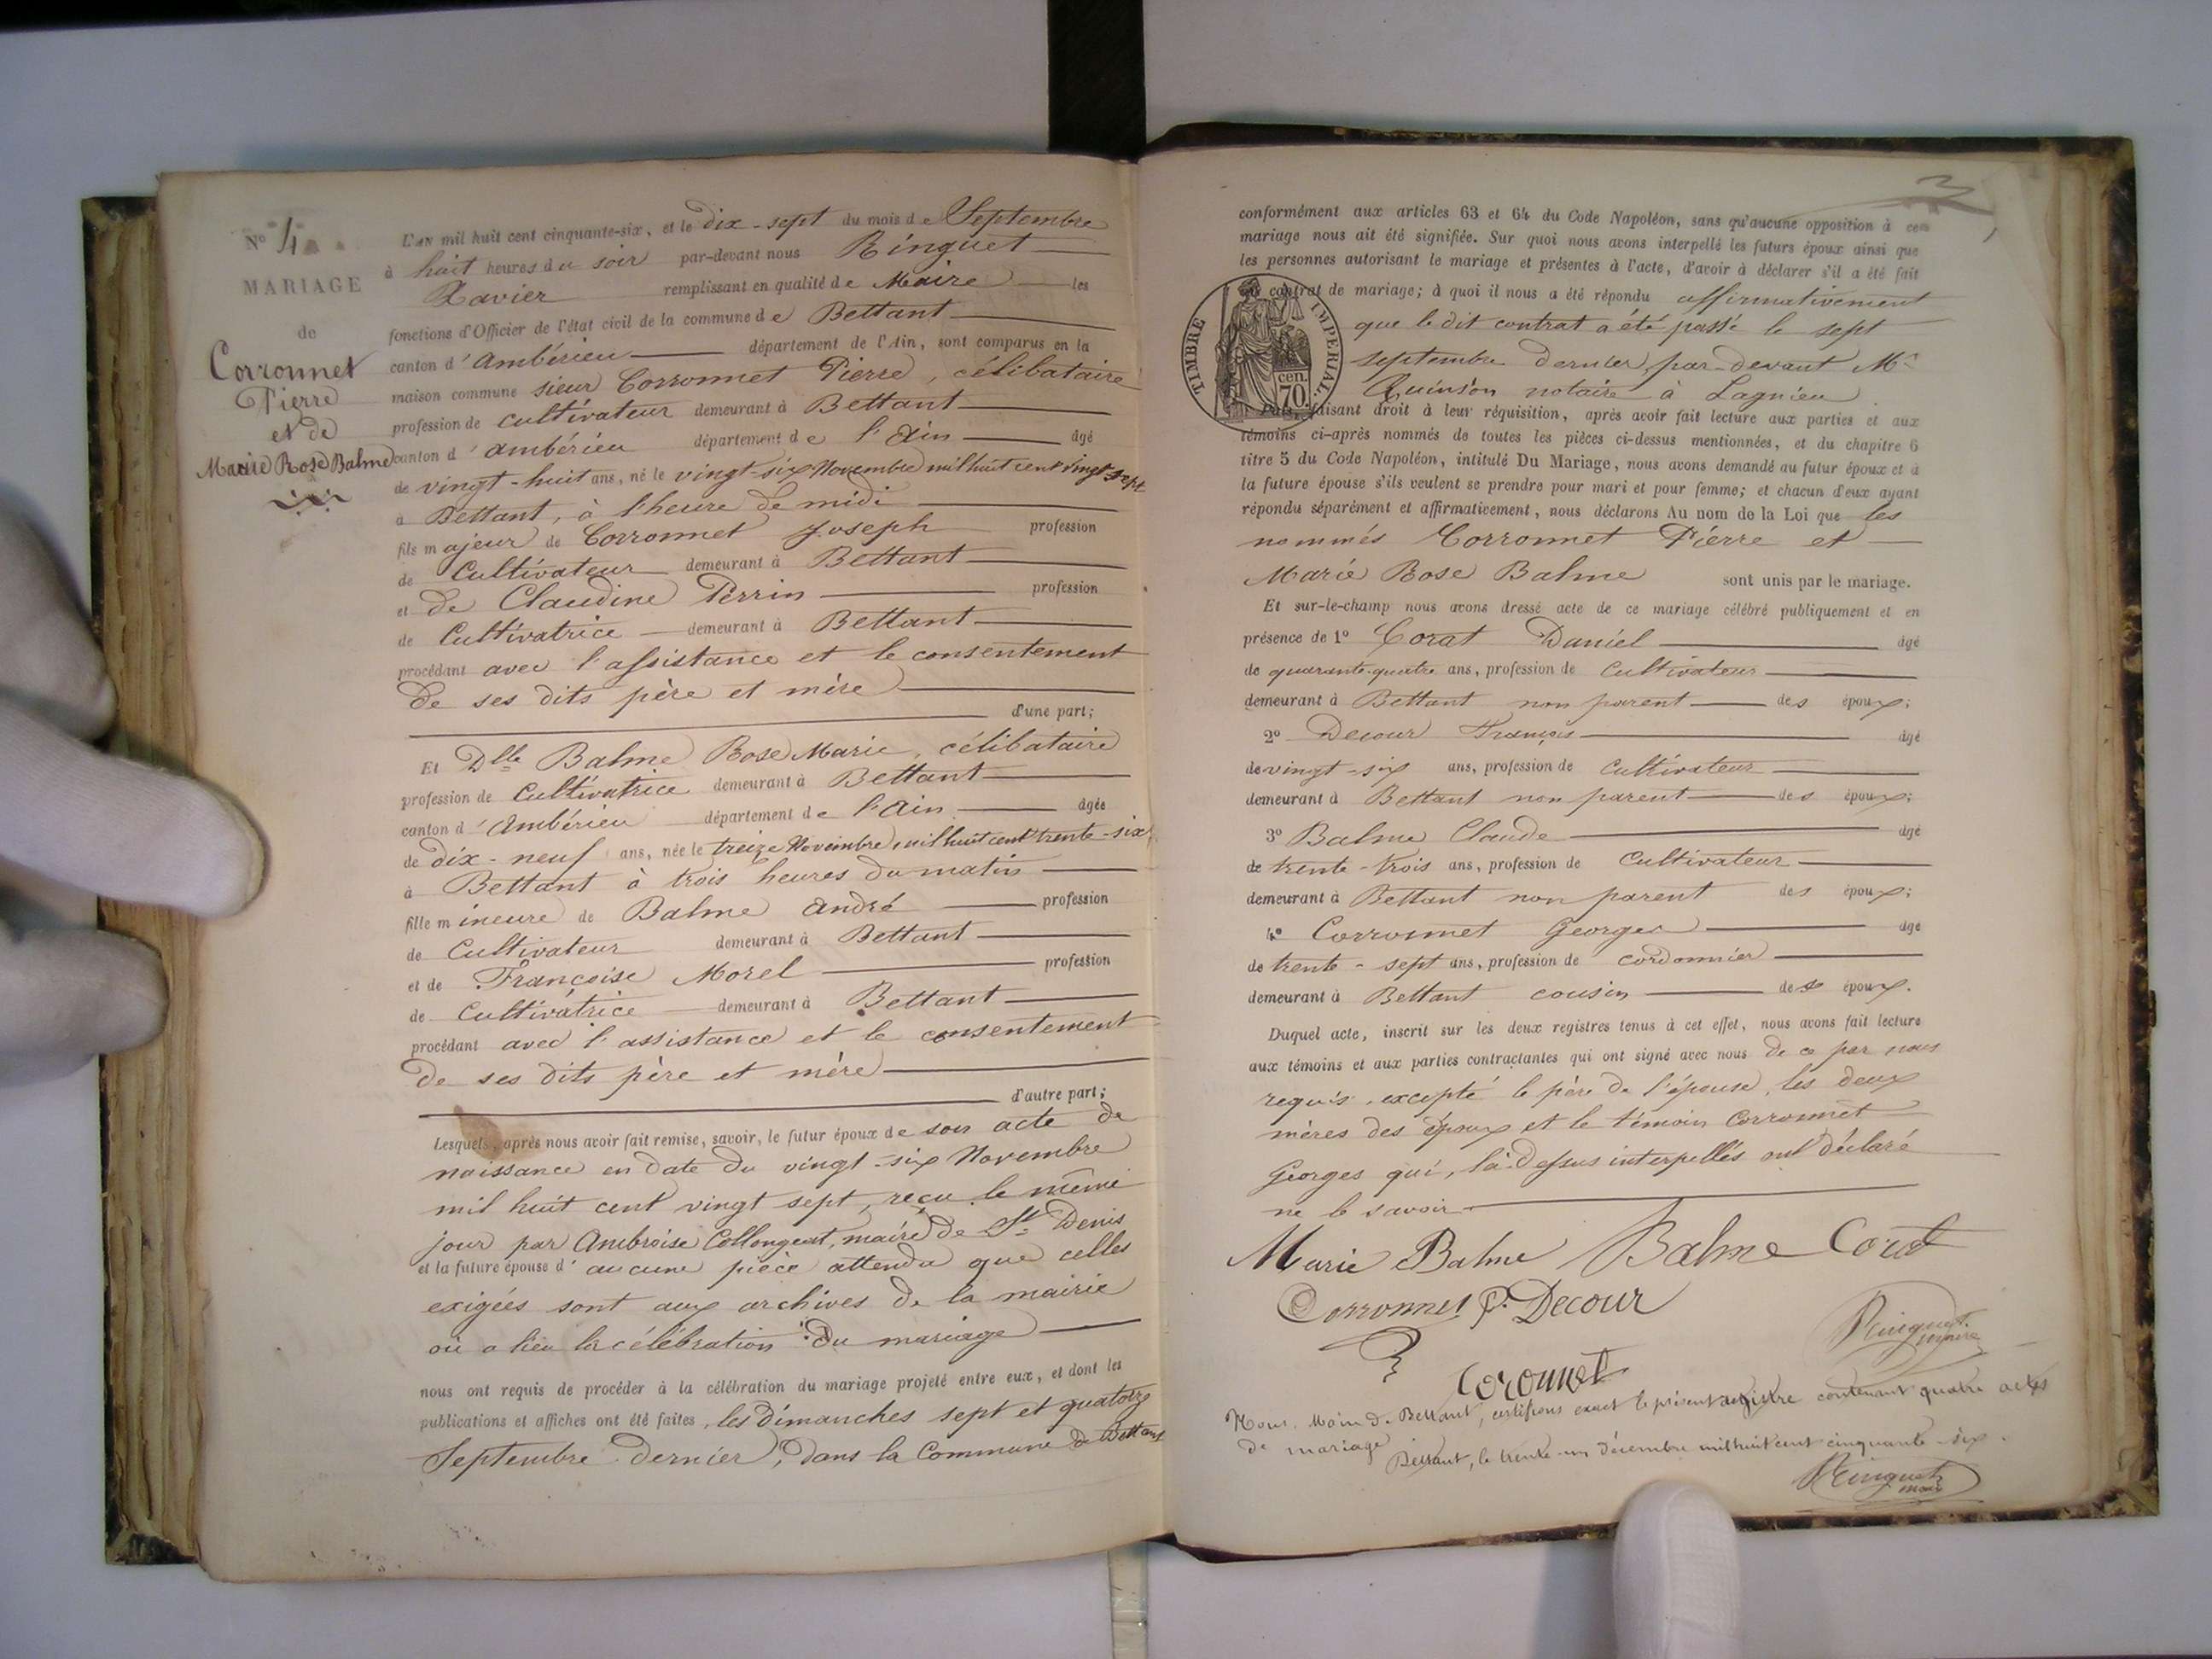 N° 4
MARIAGE
de
Corronnet
Pierre
et de
Marie Rose Balme
L'AN mil huit cent cinquante-six, et le dix-sept du mois de Septembre
à huit heures du soir par-devant nous Ringuet
Xavier remplissant en qualité de Maire les
fonctions d'Officier de l'état civil de la commune de Bettant
canton d'Ambérieu département de l'Ain, sont comparus en la
maison commune sieur Corronnet Pierre, célibataire
profession de cultivateur demeurant à Bettant
canton d'ambérieu département de l'Ain âgé
de vingt-huit ans, né le vingt-six Novembre mil huit cent vingt sept
à Bettant, à l'heure de midi
fils majeur de Corronnet Joseph profession
de Cultivateur demeurant à Bettant
et de Claudine Perrin profession
de Cultivatrice demeurant à Bettant
procédant avec l'assistance et le consentement
de ses dits père et mère
d'une part;
Et Dlle Balme Rose Marie, célibataire
profession de Cultivatrice demeurant à Bettant
canton d'Ambérieu département de l'Ain âgée
de dix-neuf ans, née le treize Novembre mil huit cent trente-six
à Bettant à trois heures du matin
fille mineure de Balme André profession
de Cultivateur demeurant à Bettant
et de Françoise Morel profession
de Cultivatrice demeurant à Bettant
procédant avec l'assistance et le consentement
de ses dits père et mère
d'autre part;
Lesquels, après nous avoir fait remise, savoir, le futur époux de son acte de
naissance en date du vingt-six Novembre
mil huit cent vingt sept, reçu le même
jour par Ambroise Collongeat, maire de St Denis
et la future épouse d'aucune pièce attendu que celles
exigées sont aux archives de la mairie
où a lieu la célébration du mariage
nous ont requis de procéder à la célébration du mariage projeté entre eux, et dont les
publications et affiches ont été faites, les dimanches sept et quatorze
Septembre dernier, dans la Commune de Bettant
conformément aux articles 63 et 64 du Code Napoléon, sans qu'aucune opposition à ce
mariage nous ait été signifiée. Sur quoi nous avons interpellé les futurs époux ainsi que
les personnes autorisant le mariage et présentes à l'acte, d'avoir à déclarer s'il a été fait
contrat de mariage; à quoi il nous a été répondu affirmativement
que le dit contrat a été passé le sept
septembre dernier, par-devant Me
Quinson notaire à Lagnieu
TIMBRE IMPERIAL
cen.
70.
faisant droit à leur réquisition, après avoir fait lecture aux parties et aux
témoins ci-après nommés de toutes les pièces ci-dessus mentionnées, et du chapitre 6
titre 5 du Code Napoléon, intitulé Du Mariage, nous avons demandé au futur époux et à
la future épouse s'ils veulent se prendre pour mari et pour femme; et chacun d'eux ayant
répondu séparément et affirmativement, nous déclarons Au nom de la Loi que les
nommés Corronnet Pierre et
Marie Rose Balme sont unis par le mariage.
Et sur-le-champ nous avons dressé acte de ce mariage célébré publiquement et en
présence de 1° Corat Daniel âgé
de quarante-quatre ans, profession de Cultivateur
demeurant à Bettant non parent des époux;
2° Decour François âgé
de vingt-six ans, profession de Cultivateur
demeurant à Bettant non parent des époux;
3° Balme Claude âgé
de trente-trois ans, profession de Cultivateur
demeurant à Bettant non parent des époux;
4° Corronnet Georges âgé
de trente-sept ans, profession de cordonnier
demeurant à Bettant cousin des époux.
Duquel acte, inscrit sur les deux registres tenus à cet effet, nous avons fait lecture
aux témoins et aux parties contractantes qui ont signé avec nous de ce par nous
requis, excepté le père de l'épouse, les deux
mères des époux et le témoin Corronnet
Georges qui, là-dessus interpellés ont déclaré
ne le savoir
Marie Balme Balme Corat
Corronnet f. Decour
Ringuet
maire
Coronnet
Nous, Maire de Bettant, certifions exact le présent registre contenant quatre actes
de mariage
Bettant, le trente-un Décembre mil huit cent cinquante-six.
Ringuet
maire